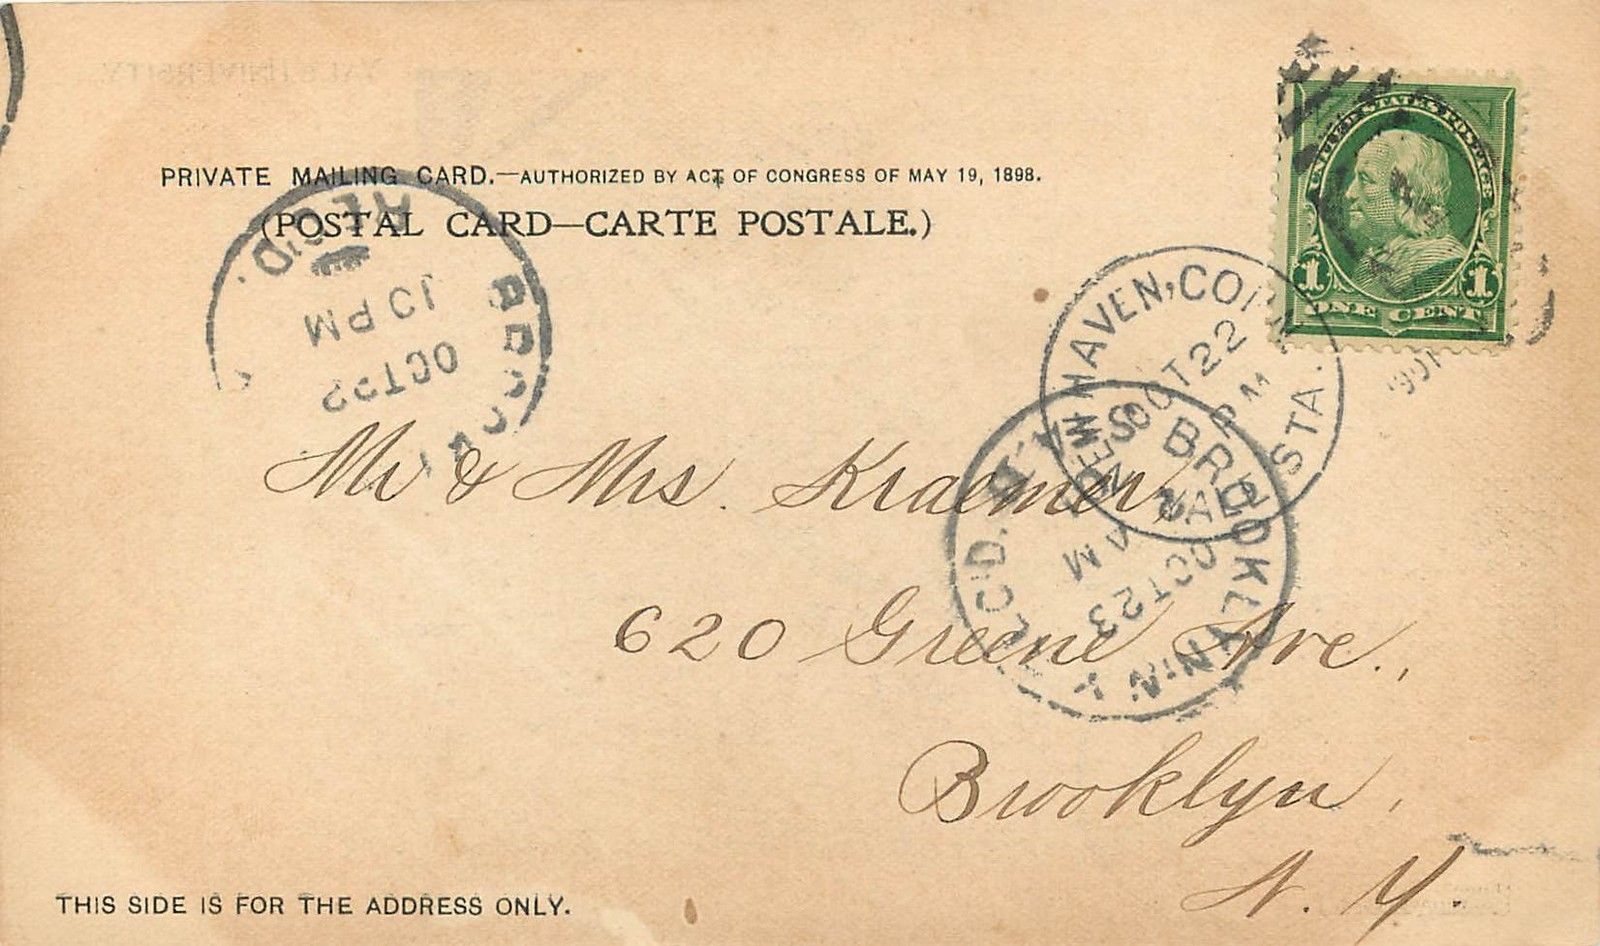 PRIVATE MAILING CARD.—AUTHORIZED BY ACT OF CONGRESS OF MAY 19, 1898.
(POSTAL CARD—CARTE POSTALE.)
UNITED STATES POSTAGE
1 1
ONE CENT
NEW HAVEN, CONN
OCT 22
PM
YALE STA.
REC'D.
10 PM
OCT 22
BROOKLYN. N. Y. REC'D.
OCT 23
AM
Mr & Mrs. Kraemer,
620 Greene Ave.,
Brooklyn,
N. Y.
THIS SIDE IS FOR THE ADDRESS ONLY.